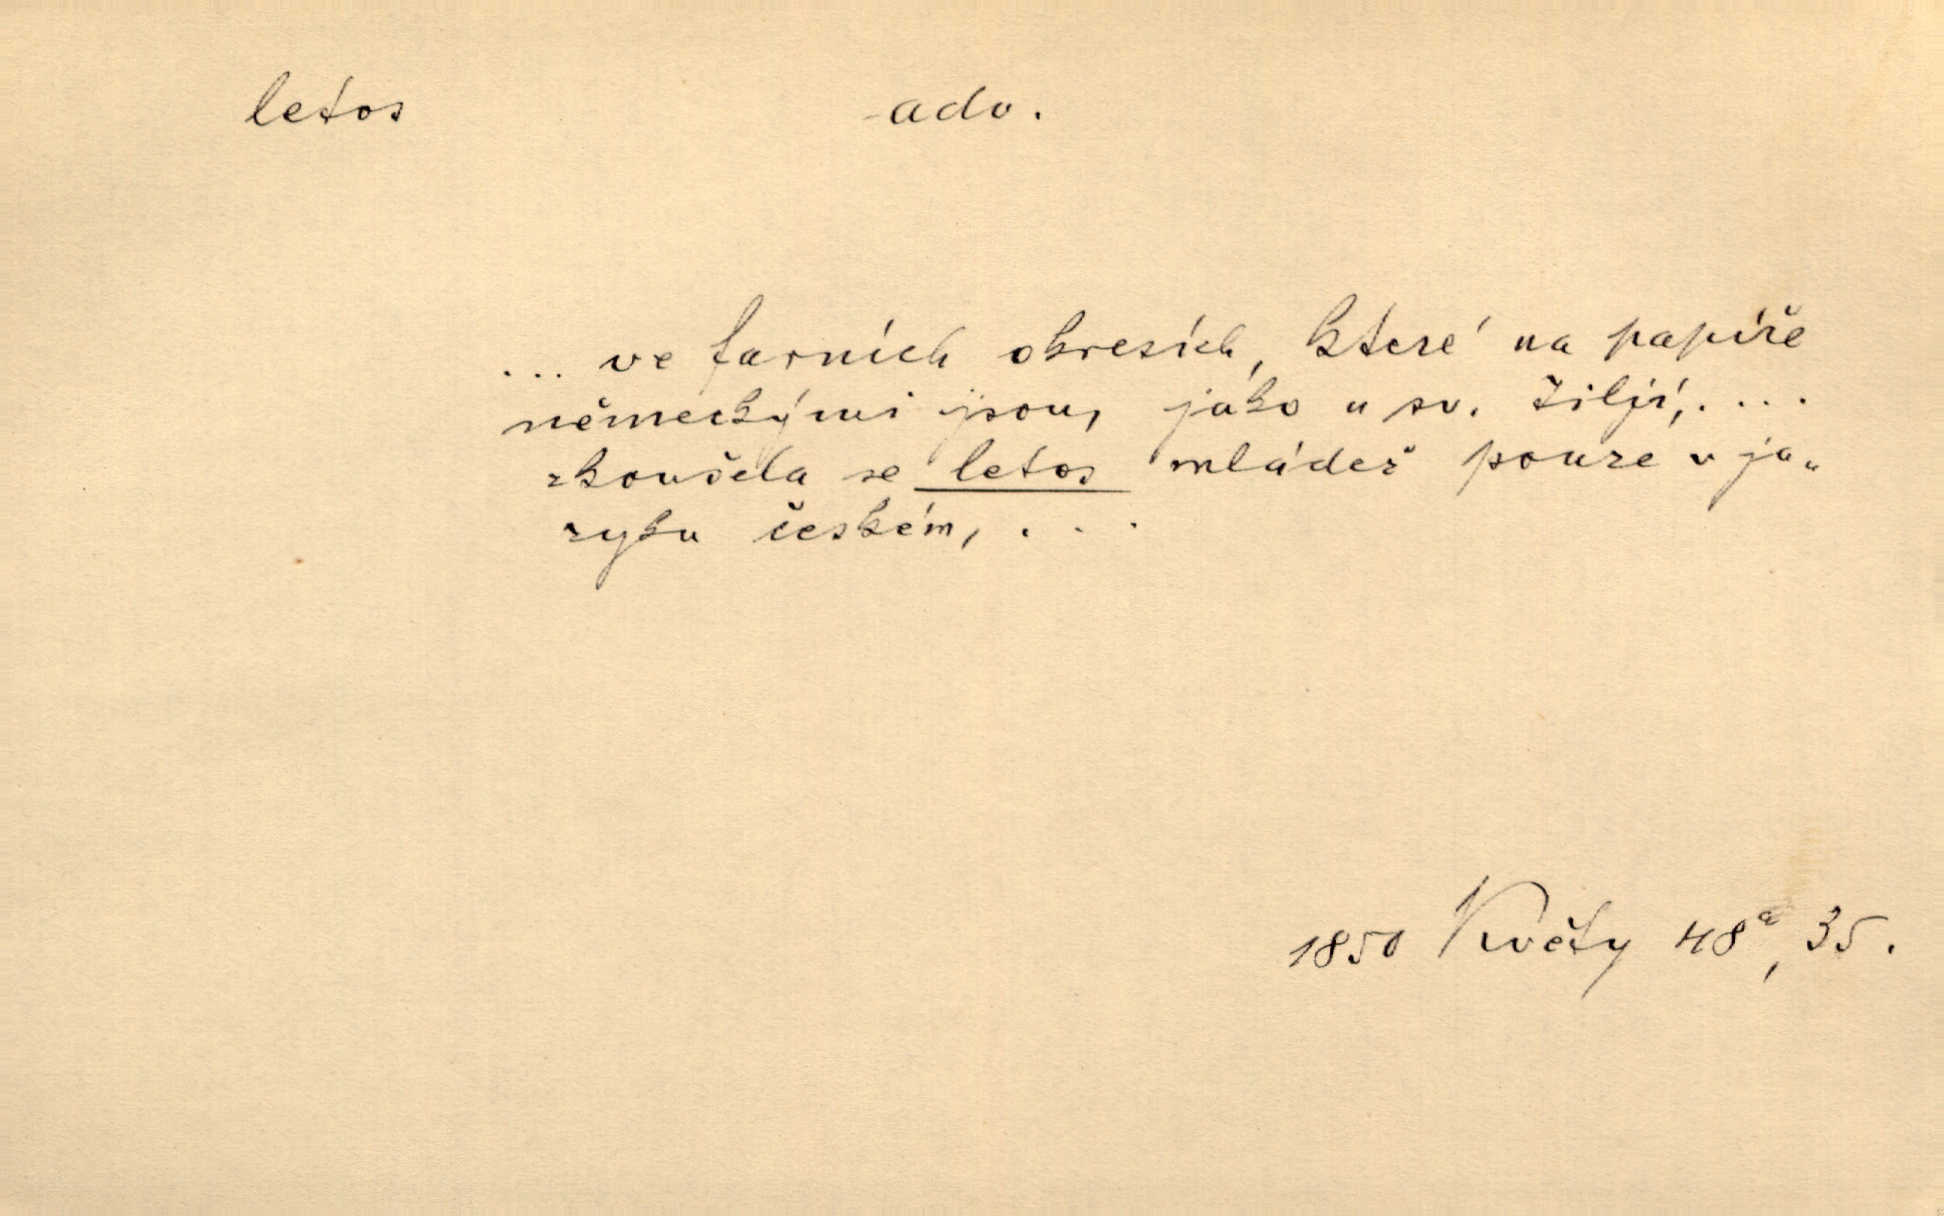 letos adv.
... ve farních okresích, které na papíře
německými jsou, jako u sv. Žiljí, ....
zkoušela se letos mládež pouze v ja„
zyku českém, . . .
1850 Květy 48a, 35.